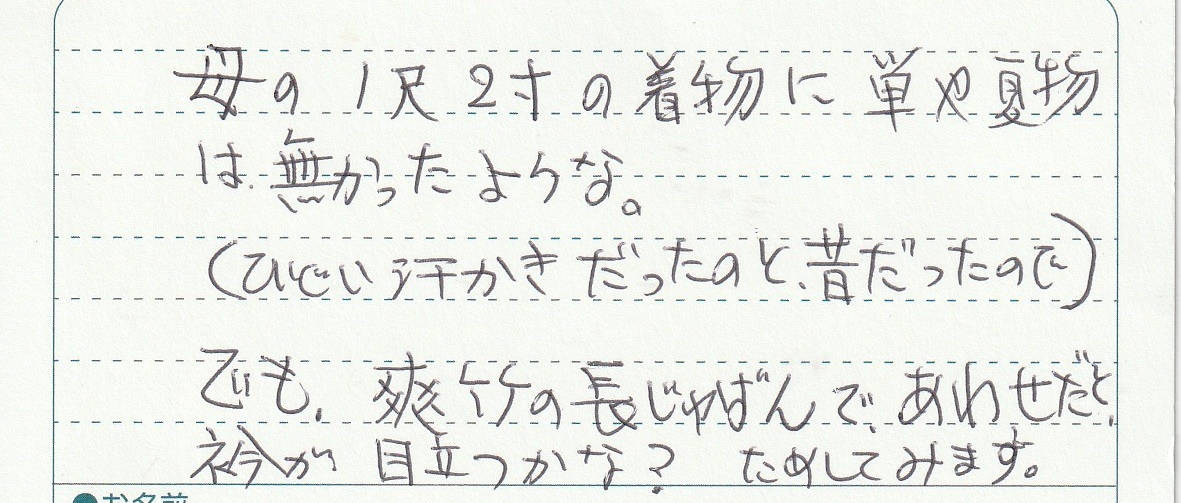 母の1尺2寸の着物に単や夏物
は無かったような。
(ひどい汗かきだったのと、昔だったので)
でも、爽竹の長じゅばんで、あわせだと、
衿が目立つかな？ ためしてみます。
●お名前